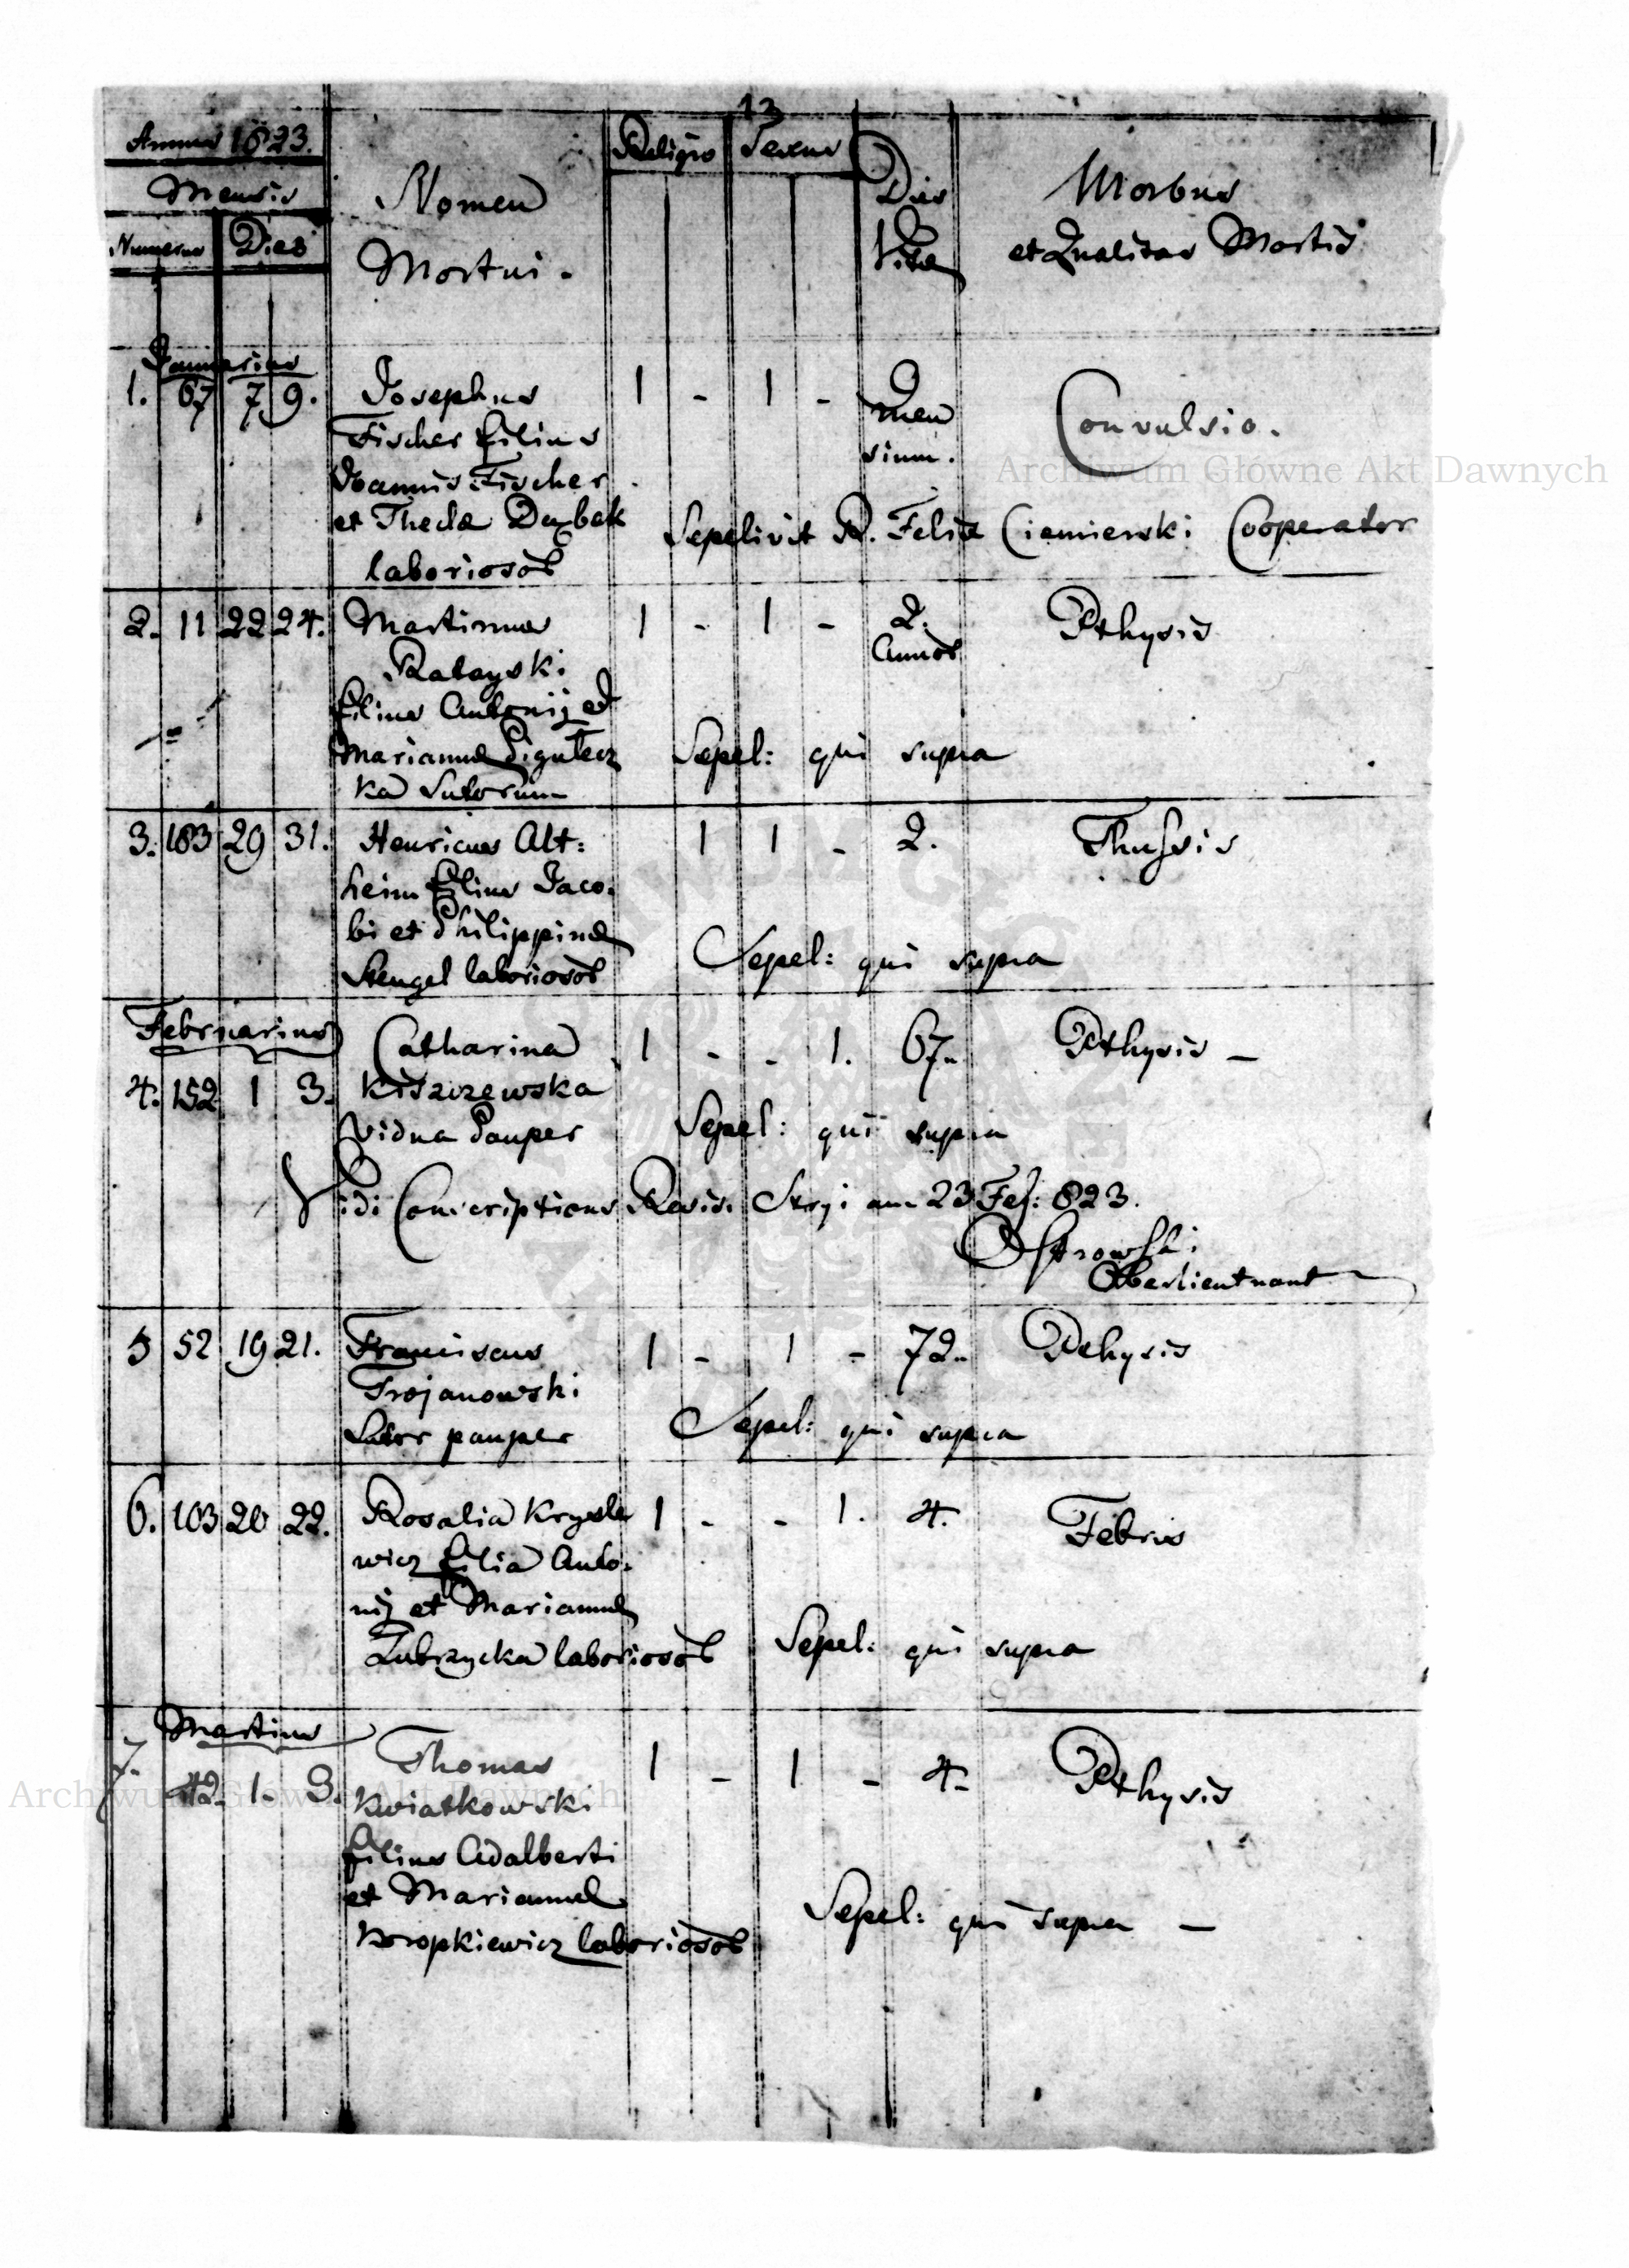 13
Annus 1823.
Religio Sexus
Mensis
Nomen
Dies
Morbus
Numerus Dies
Mortui.
Vitæ
et Qualitas Mortis
Januarius
1. 67 7 9. Josephus 1 - 1 - 9
Fischer filius
men
Convulsio.
Joannis Fischer
sium.
Archiwum Główne Akt Dawnych
et Theclæ
Sepelivit R. Felix Ciemierski Cooperator
laboriosor
2. 11 22 24. Martinus 1 - 1 - 2. Pthysis
Ratayski
Annor
filius Antonij et
Mariannæ Pigulecz
Sepel: qui supra
ka Sutorum
3. 183 29 31. Henricus Alt= 1 1 - 2. Thussis
heim filius Jaco=
bi et Philippinæ
Stengel laboriosor
Sepel: qui supra
Februarius
Catharina 1 - - 1. 67. Pthysis -
4. 152 1 3. Kiszczewska
Vidua Pauper
Sepel: qui supra
Vidi Conscriptions Revis. Stryi am 23 Feb: 823.
Ostrowski
Oberlieutnant
5 52 19 21. Franciscus 1 - 1 - 72. Pthysis
Trojanowski
Sutor pauper
Sepel: qui supra
6. 103 20 22. Rosalia Krysle 1 - - 1. 4. Febris
wicz filia Anto=
nij et Mariannæ
Zubrzycka laboriosor
Sepel: qui supra
Martius
7. 42. 1. 3. Thomas 1 - 1 - 4. Pthysis
Archiwum Główne Akt Dawnych
Kwiatkowski
filius Adalberti
et Mariannæ
Koropkiewicz laboriosor
Sepel: qui supra -